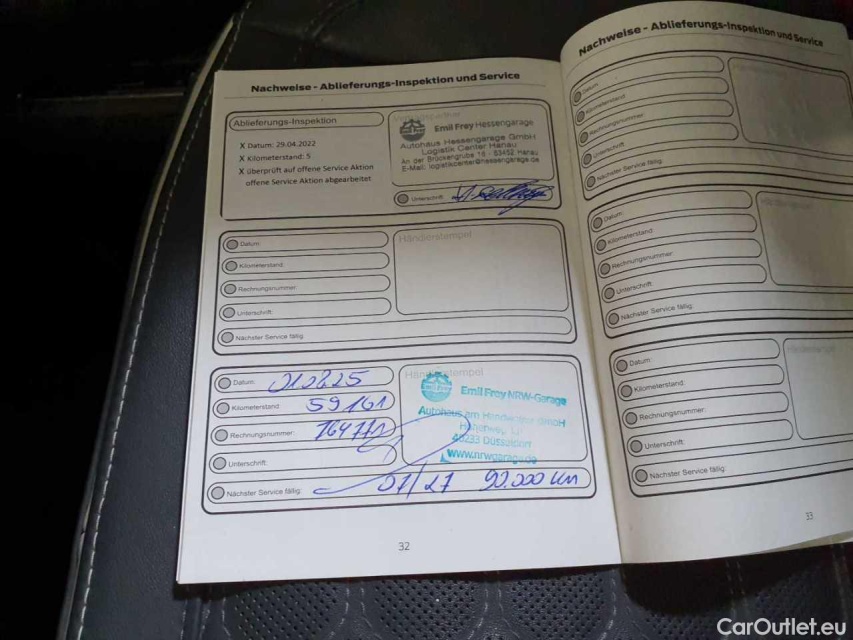 Nachweise - Ablieferungs-Inspektion und Service
Ablieferungs-Inspektion
X Datum: 29.04.2022
X Kilometerstand: 5
X überprüft auf offene Service Aktion
offene Service Aktion abgearbeitet
Emil Frey Hessengarage
Autohaus Hessengarage GmbH
Logistik Center Hanau
An der Brückengrube 16 - 63452 Hanau
E-Mail: logistikcenter@hessengarage.de
Unterschrift:
Datum:
Kilometerstand:
Rechnungsnummer:
Unterschrift:
Nächster Service fällig:
Händlerstempel
Datum:
Kilometerstand: 59161
Rechnungsnummer:
Unterschrift:
Nächster Service fällig: 07/27 90.000 km
Händlerstempel
Emil Frey
Emil Frey NRW-Garage
Autohaus am Handweiser GmbH
40233 Düsseldorf
www.nrwgarage.de
32
Nachweise - Ablieferungs-Inspektion und Service
Datum:
Kilometerstand:
Rechnungsnummer:
Unterschrift:
Nächster Service fällig:
Datum:
Kilometerstand:
Rechnungsnummer:
Unterschrift:
Nächster Service fällig:
Händlerstempel
Datum:
Kilometerstand:
Rechnungsnummer:
Unterschrift:
Nächster Service fällig:
Händlerstempel
33
CarOutlet.eu